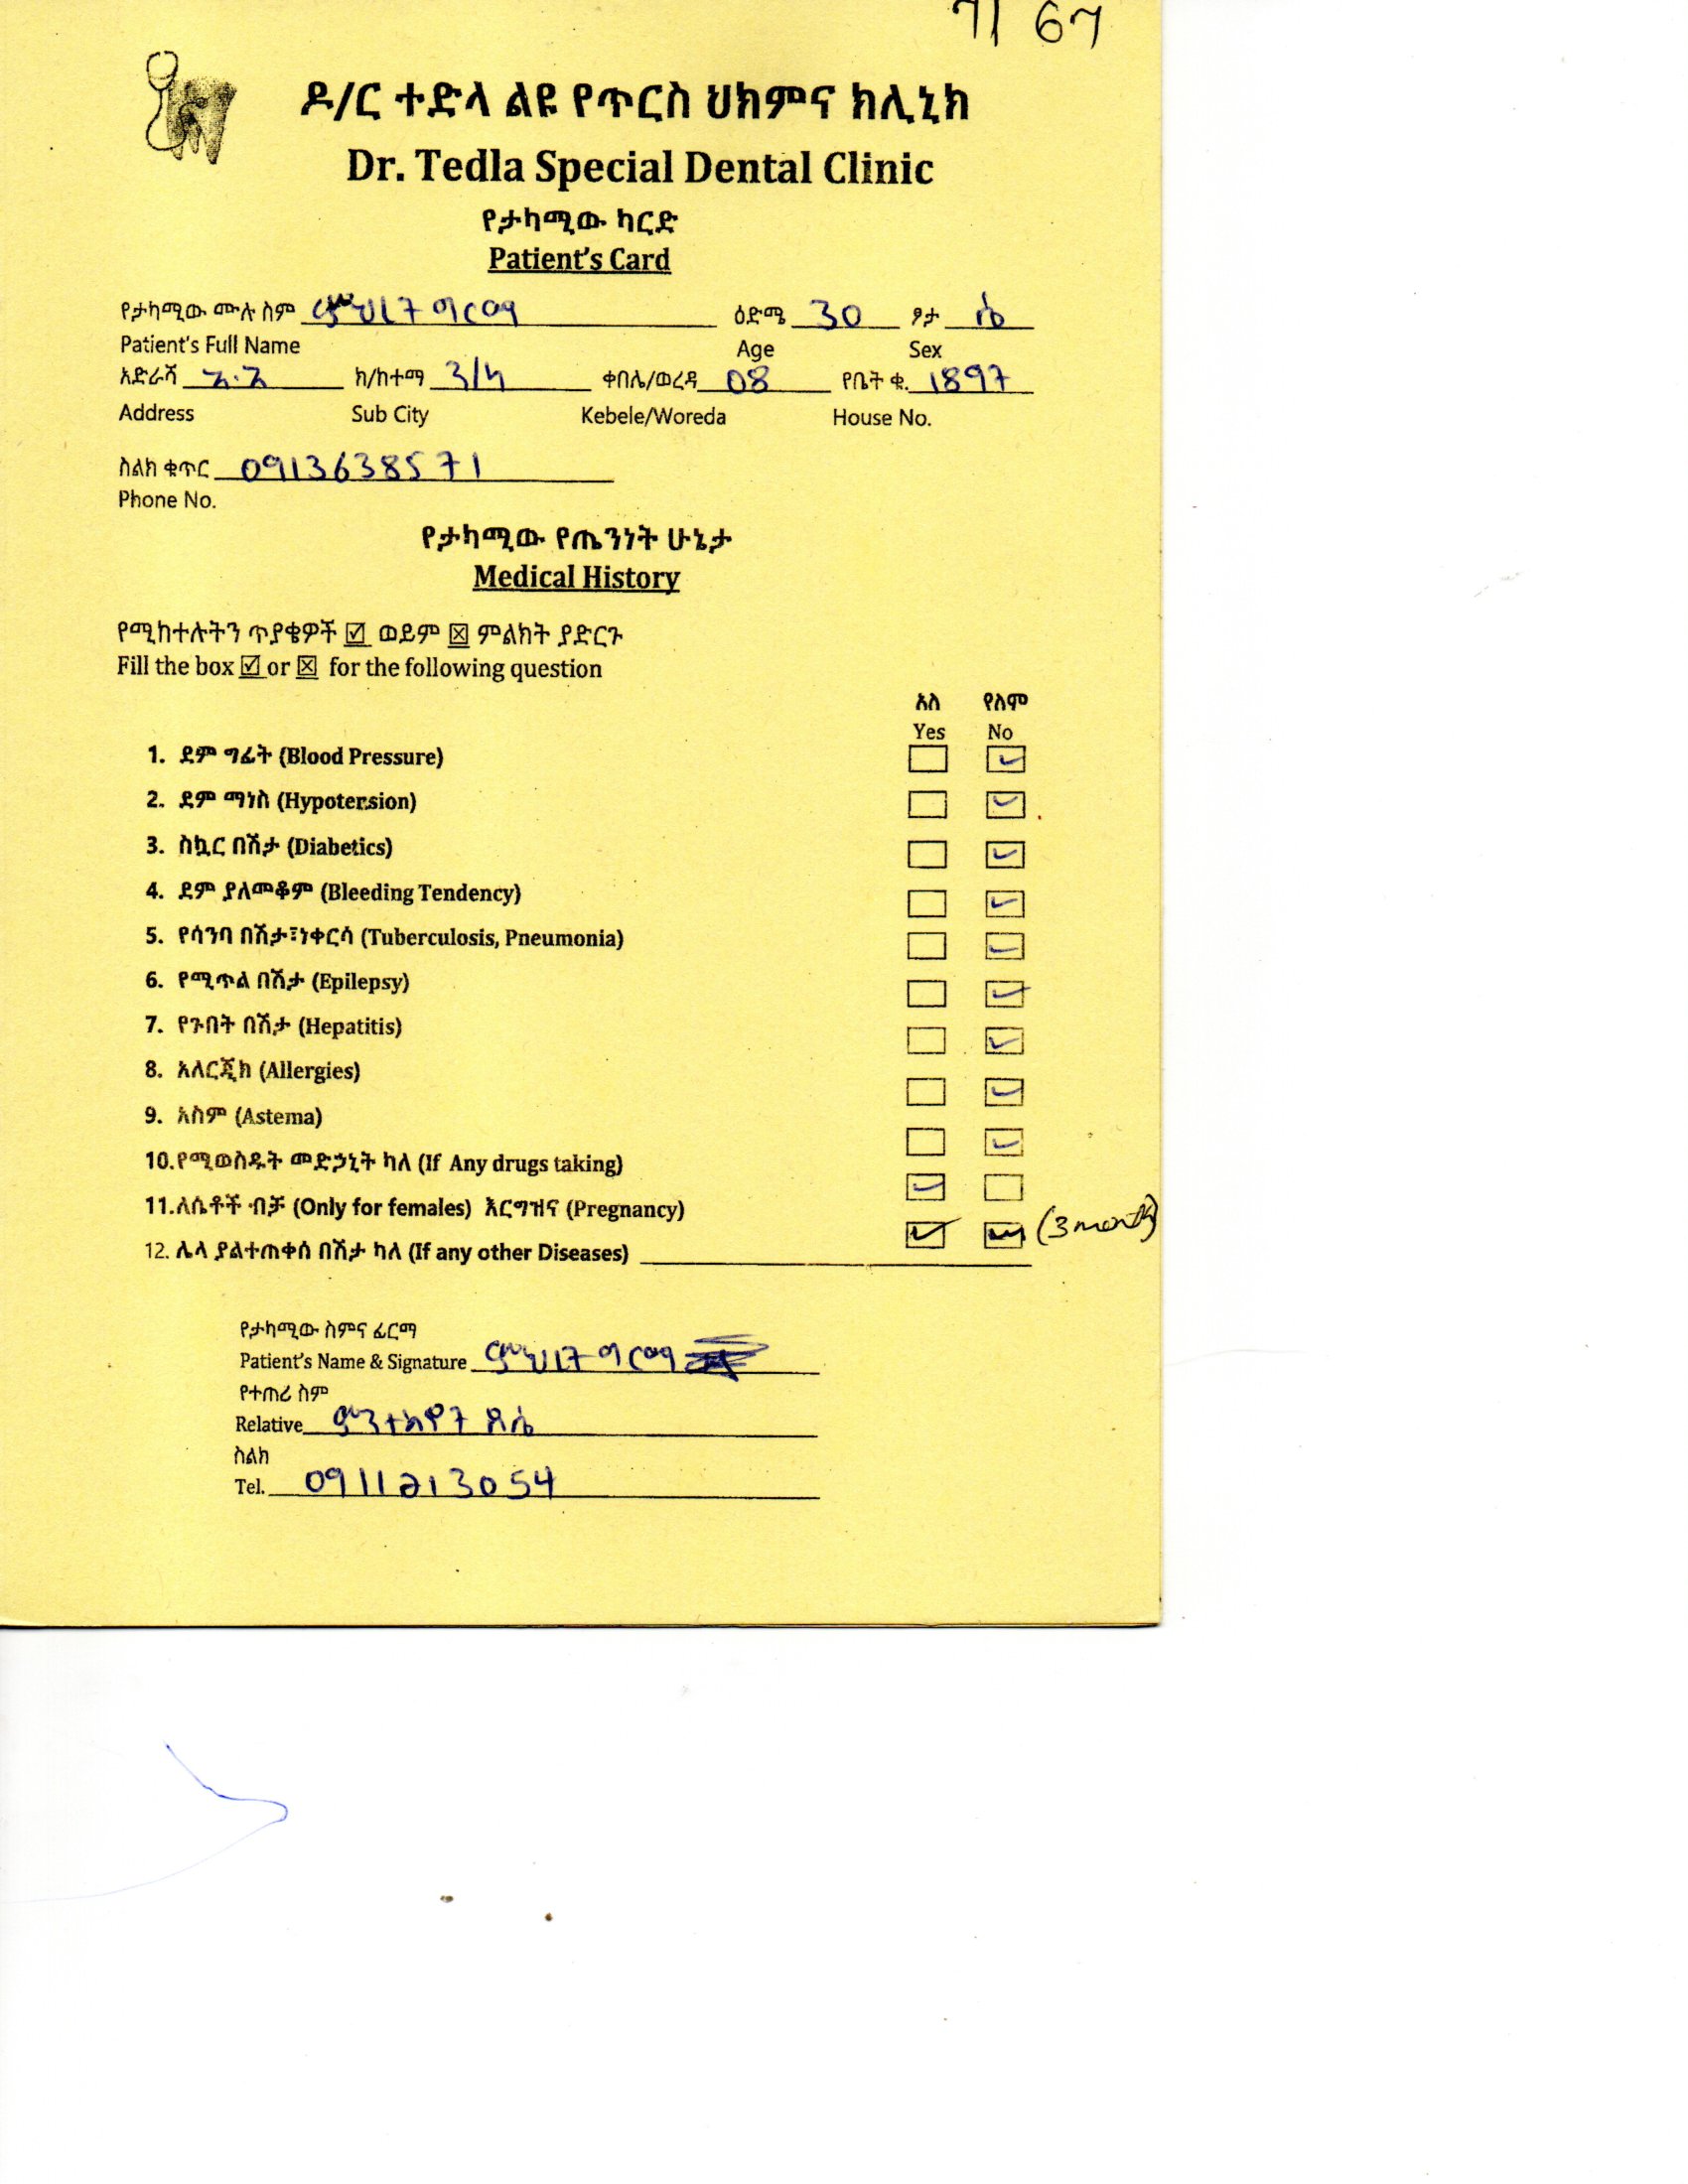 7167
ዶ/ር ተድላ ልዩ የጥርስ ህክምና ክሊኒክ
Dr. Tedla Special Dental Clinic
የታካሚው ካርድ
Patient's Card
የታካሚው ሙሉ ስም ምህረት ግርማ ዕድሜ 30 ፆታ ሴ
Patient's Full Name Age Sex
አድራሻ አ.አ ክ/ከተማ ን/ላ ቀበሌ/ወረዳ 08 የቤት ቁ. 1897
Address Sub City Kebele/Woreda House No.
ስልክ ቁጥር 0913638571
Phone No.
የታካሚው የጤንነት ሁኔታ
Medical History
የሚከተሉትን ጥያቄዎች ☑ ወይም ☒ ምልክት ያድርጉ
Fill the box ☑ or ☒ for the following question
አለ የለም
Yes No
1. ደም ግፊት (Blood Pressure)
2. ደም ማነስ (Hypotersion)
3. ስኳር በሽታ (Diabetics)
4. ደም ያለመቆም (Bleeding Tendency)
5. የሳንባ በሽታ፣ነቀርሳ (Tuberculosis, Pneumonia)
6. የሚጥል በሽታ (Epilepsy)
7. የጉበት በሽታ (Hepatitis)
8. አለርጂክ (Allergies)
9. አስም (Astema)
10.የሚወስዱት መድኃኒት ካለ (If Any drugs taking)
11.ለሴቶች ብቻ (Only for females) እርግዝና (Pregnancy) (3 month)
12. ሌላ ያልተጠቀሰ በሽታ ካለ (If any other Diseases)
የታካሚው ስምና ፊርማ
Patient's Name & Signature ምህረት ግርማ
የተጠሪ ስም
Relative
ስልክ
Tel. 0911213054